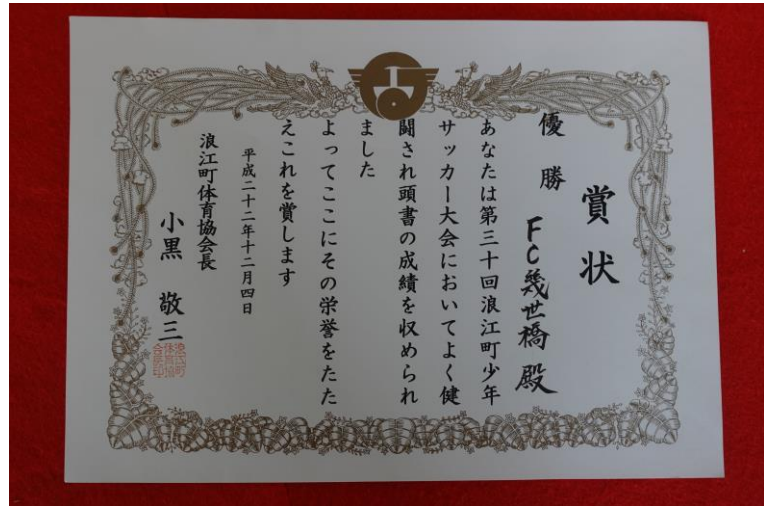 賞状
優勝
FC幾世橋殿
あなたは第三十回浪江町少年
サッカー大会においてよく健
闘され頭書の成績を収められ
ました
よってここにその栄誉をたた
えこれを賞します
平成二十二年十二月四日
浪江町体育協会長
小黒 敬三